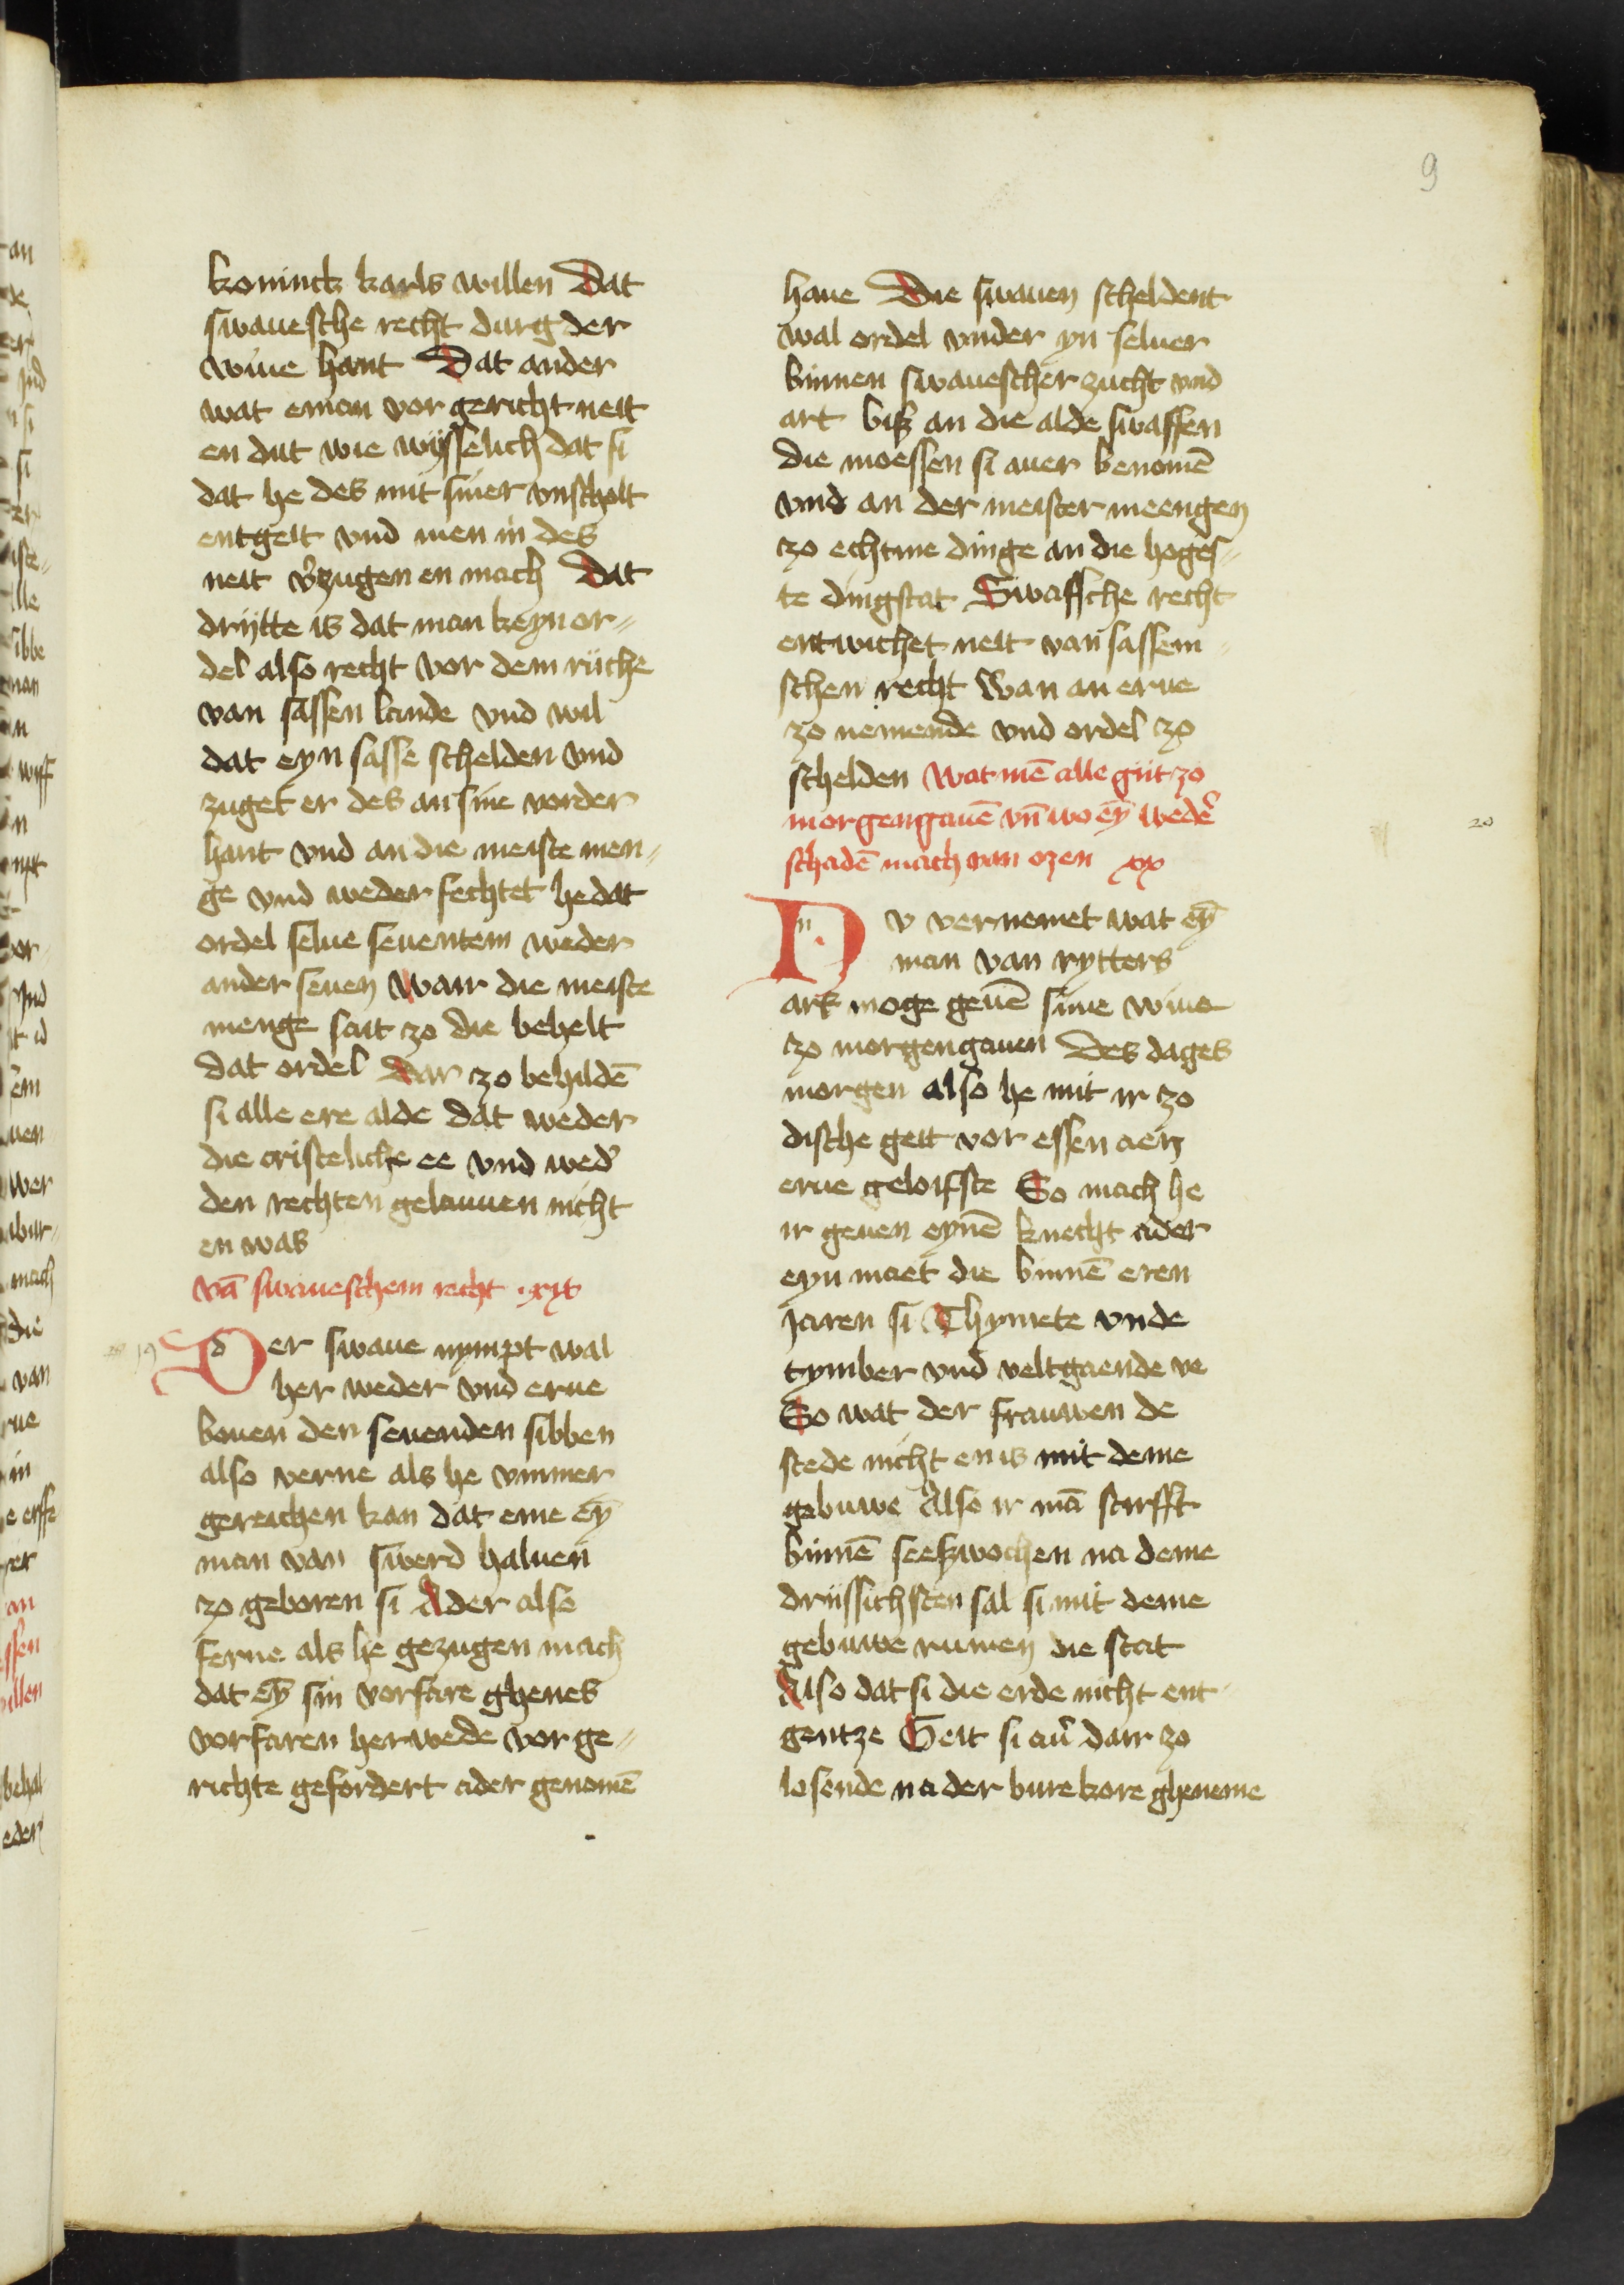 9
koninck karls willen Dat
swauesche recht durg der
wiue hant Dat ander
wat eman vor gericht neit
en dut wie wysselich dat si
dat he des mit siner vnscholt
entgeit vnd men in des
neit v̾zugen en mach Dat
drytte is dat man keyn or⸗
del also recht vor dem riiche
van sassen lande vnd wil
dat eyn sasse schelden vnd
zuget er des an sine vorder
hant vnd an die meiste men⸗
ge vnd weder fechtet he dat
ordel selue seuentein weder
ander seuen Wair die meiste
menge stait zo die behelt
dat ordel Dar zo behildē
si alle ere alde dat weder
die cristeliche ee vnd wed̾
den rechten gelauuen nicht
en was
vā swaueschem recht .xix
19
Der swaue nympt wal
her weder vnd erue
bouen den seuenden sibben
also verne als he vmmer
gereichen kan dat eme eȳ
man van swerd haluen
zo geboren si Ader also
ferne als he gezugen mach
dat eȳ sin vorfare ghenes
vorfaren herwede vor ge⸗
richte gefordert ader genomē
haue Die swauen scheldent
wal ordel vnder yn seluer
binnen swauescher zucht vnd
art biß an die alde swassen
die moessen si auer benomē
vnd an der meister meengen
zo echtme dinge an die hoges⸗
te dingstat Swaffsche recht
entwichet neit van sassem⸗
schen recht Wan an erue
zo nemende vnd ordel zo
schelden Wat mē alle güt zo
morgengauē vn̄ wo eȳ wed̾
schadē mach van ozen xx
20
Nv vernemet wat eȳ
man van rytters
art moge geuē sime wiue
zo morgengauen Des dages
morgen also he mit ir zo
dische geit vor essen aen
erue geloifste So mach he
ir geuen eynē knecht ader
eyn maet die binnē eren
jaren si Thymete vnde
tymber vnd veltgaende ve
So wat der frauwen de
stede nicht en is mit deme
gebuwe Also ir mā stirfft
binnē seeßwochen na deme
drüssichsten sal si mit deme
gebuwe rumen die stat
Also dat si die erde nicht ent⸗
gentze Beit si au̾ dair zo
losende na der burekore gheneme